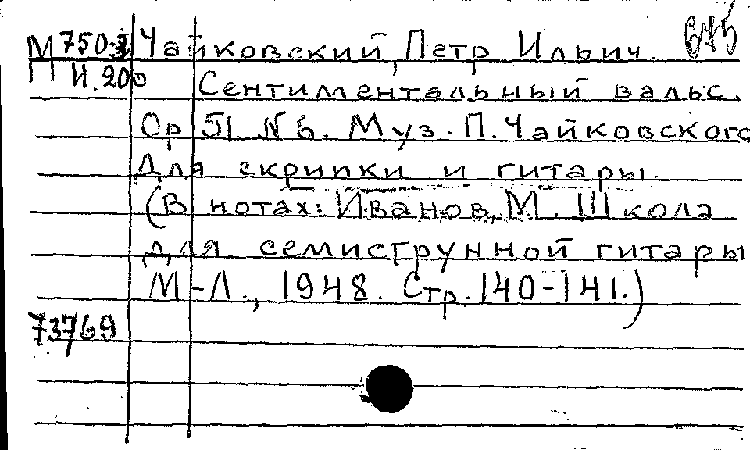 М 750-3 Чайковский, Петр Ильич.
И. 200 Сентиментальный вальс.
Ор 51 № 6. Муз. П. Чайковского
Для скрипки и гитары.
(В нотах: Иванов, М. Школа
для семиструнной гитары
М-Л., 1948. Стр. 140-141.)
73769